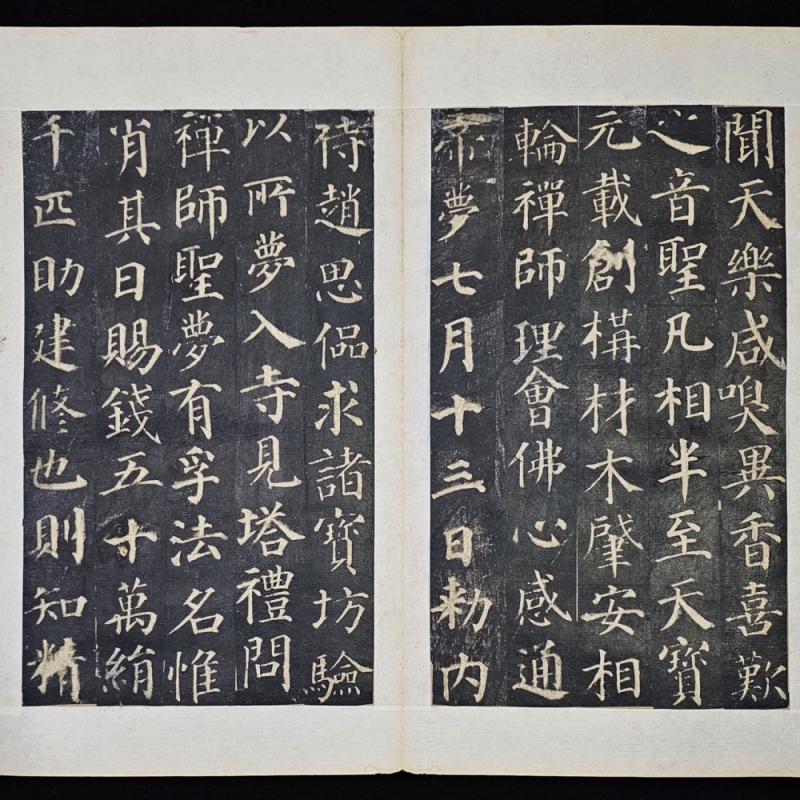 聞天樂咸嗅異香喜歎
之音聖凡相半至天寶
元載創構材木肇安相
輪禪師理會佛心感通
帝夢七月十三日勑内
侍趙思偘求諸寶坊驗
以所夢入寺見塔禮問
禪師聖夢有孚法名惟
肖其日賜錢五十萬絹
千匹助建修也則知精